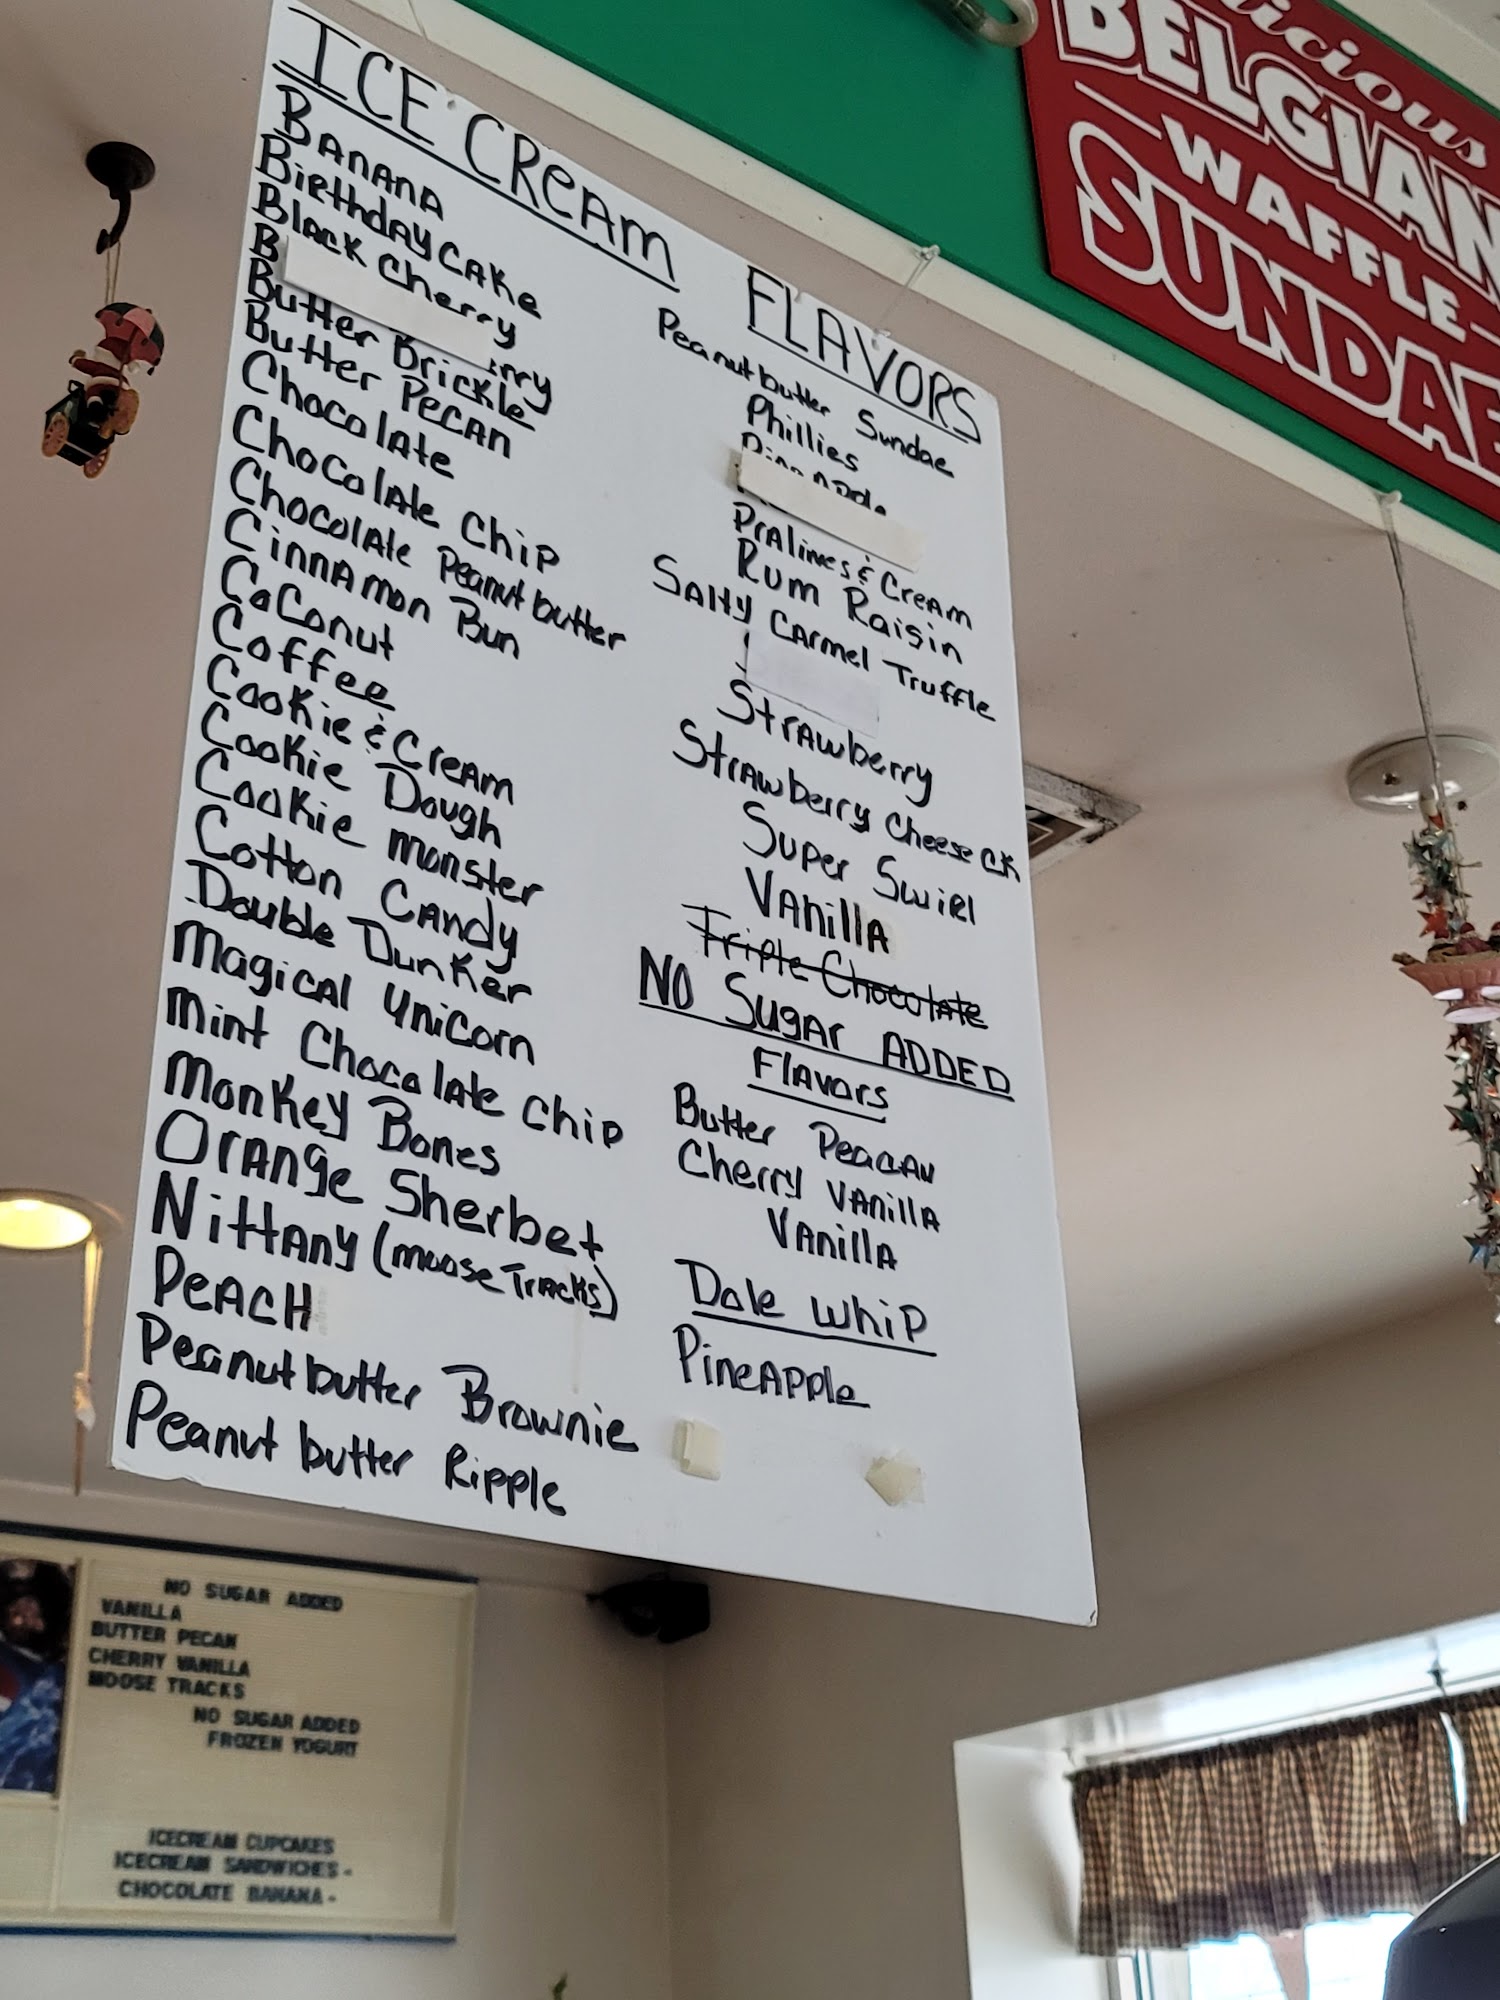 ICE CREAM FLAVORS
BANANA
Birthday CAKe
Black Cherry
Butter Brickle
Butter Pecan
Chocolate
Chocolate Chip
Chocolate Peanut butter
Cinnamon Bun
Coconut
Coffee
Cookie & Cream
Cookie Dough
Cookie monster
Cotton Candy
Double Dunker
Magical Unicorn
Mint Chocolate Chip
Monkey Bones
Orange Sherbet
Nittany (moose Tracks)
PeACH
Peanut butter Brownie
Peanut butter Ripple
Peanut butter Sundae
Phillies
Pralines & Cream
Rum Raisin
Salty Carmel Truffle
Strawberry
Strawberry Cheese CK
Super Swirl
Vanilla
Triple Chocolate
NO Sugar ADDED
Flavors
Butter Peacan
Cherry Vanilla
Vanilla
Dole Whip
PineApple
BELGIAN
WAFFLE
SUNDAE
NO SUGAR ADDED
VANILLA
BUTTER PECAN
CHERRY VANILLA
MOOSE TRACKS
NO SUGAR ADDED
FROZEN YOGURT
ICECREAM CUPCAKES
ICECREAM SANDWICHES -
CHOCOLATE BANANA -